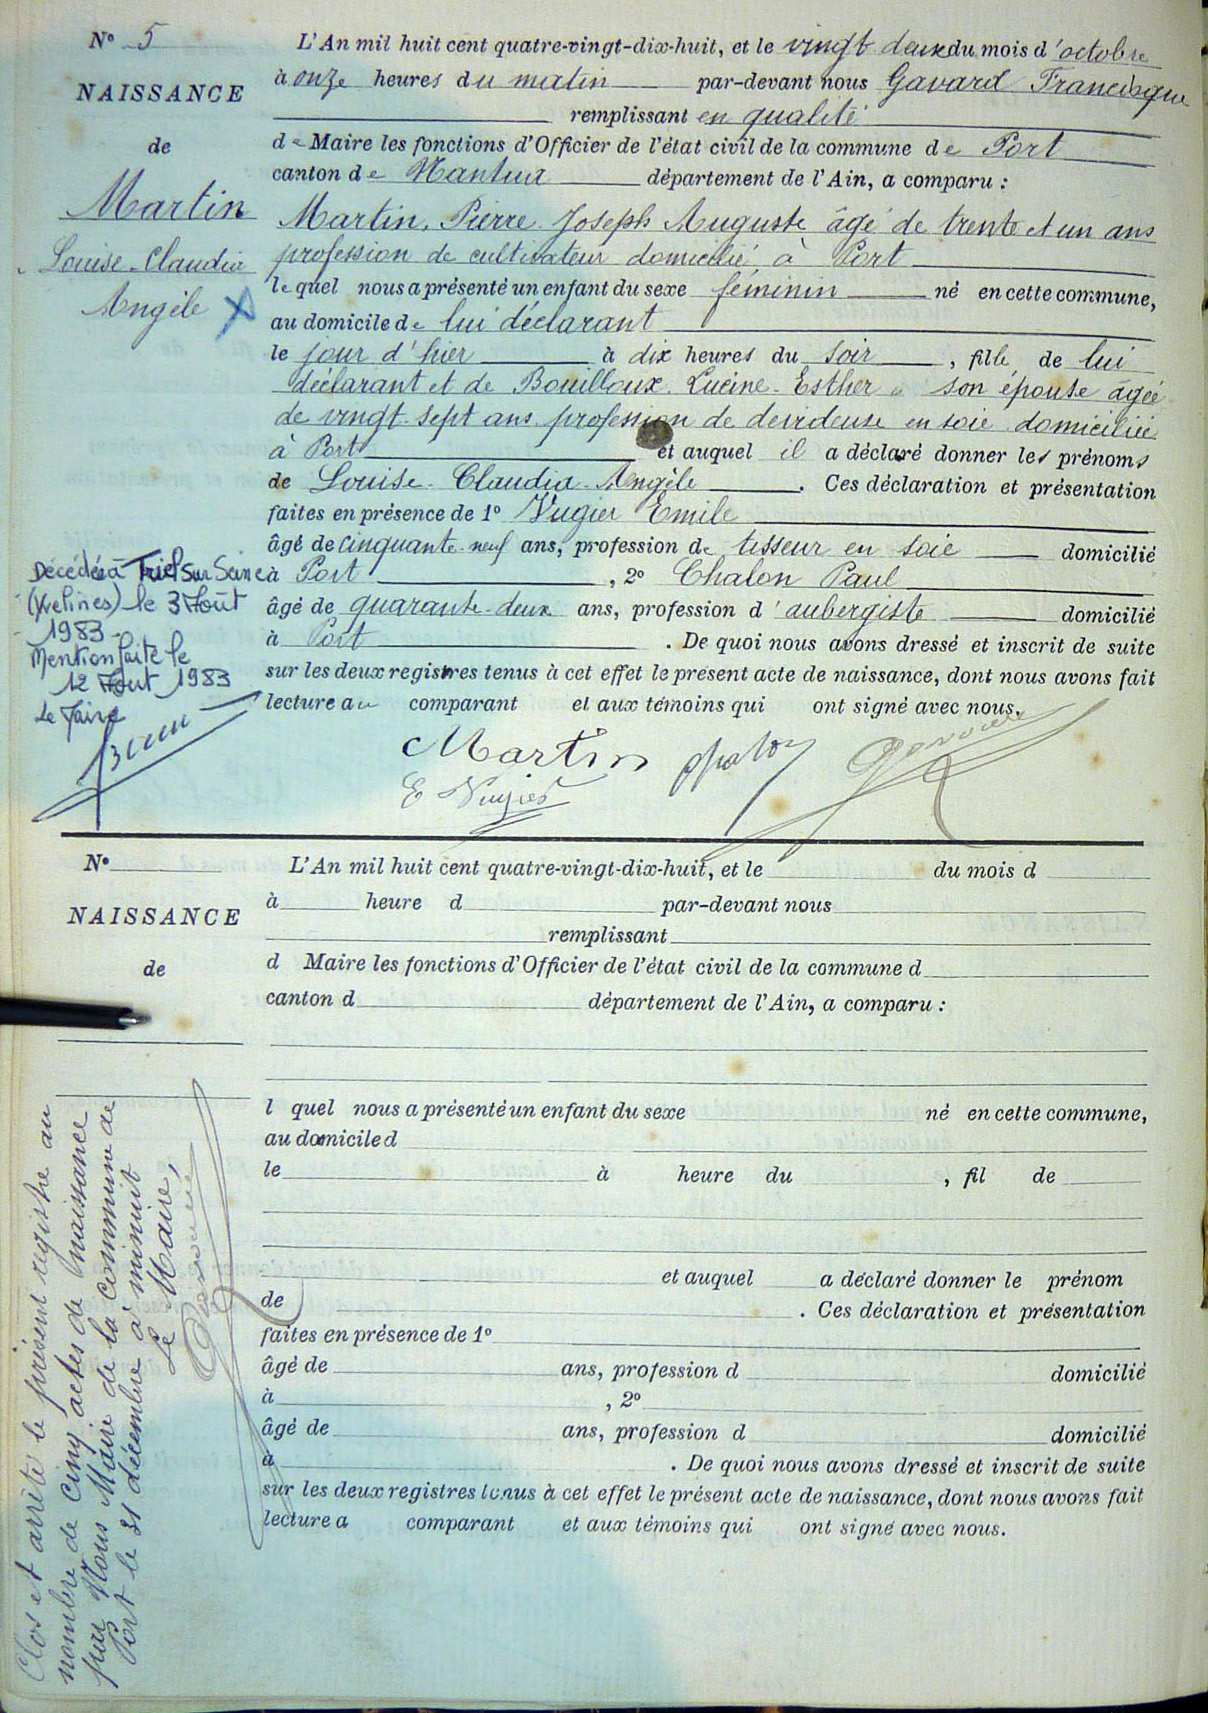 N° 5
NAISSANCE
de
Martin
Louise-Claudia
Angèle
L'An mil huit cent quatre-vingt-dix-huit, et le vingt deux du mois d'octobre
à onze heures du matin par-devant nous Gavard Francisque
remplissant en qualité
de Maire les fonctions d'Officier de l'état civil de la commune de Port
canton de Nantua département de l'Ain, a comparu :
Martin, Pierre Joseph Auguste âgé de trente et un ans
profession de cultivateur domicilié à Port
lequel nous a présenté un enfant du sexe féminin né en cette commune,
au domicile de lui déclarant
le jour d'hier à dix heures du soir, fille de lui
déclarant et de Bouilloux Lucine-Esther son épouse âgée
de vingt-sept ans profession de devideuse en soie domiciliée
à Port et auquel il a déclaré donner les prénoms
de Louise-Claudia-Angèle. Ces déclaration et présentation
faites en présence de 1° Vugier Emile
âgé de cinquante-neuf ans, profession de tisseur en soie domicilié
à Port, 2° Chalon Paul
âgé de quarante-deux ans, profession d'aubergiste domicilié
à Port. De quoi nous avons dressé et inscrit de suite
sur les deux registres tenus à cet effet le présent acte de naissance, dont nous avons fait
lecture au comparant et aux témoins qui ont signé avec nous.
Décédée à Triel Sur Seine
(Yvelines) le 3 Août
1983-
Mention faite le
12 Août 1983
Le Maire
Martin
E Vugier
N°
NAISSANCE
de
L'An mil huit cent quatre-vingt-dix-huit, et le du mois d
à heure d par-devant nous
remplissant
d Maire les fonctions d'Officier de l'état civil de la commune d
canton d département de l'Ain, a comparu :
l quel nous a présenté un enfant du sexe né en cette commune,
au domicile d
le à heure du , fil de
et auquel a déclaré donner le prénom
de . Ces déclaration et présentation
faites en présence de 1°
âgé de ans, profession d domicilié
à , 2°
âgé de ans, profession d domicilié
à . De quoi nous avons dressé et inscrit de suite
sur les deux registres tenus à cet effet le présent acte de naissance, dont nous avons fait
lecture a comparant et aux témoins qui ont signé avec nous.
Clos et arrêté le présent registre au
nombre de cinq actes de naissance
par Nous Maire de la commune de
Port le 31 décembre à minuit
Le Maire,